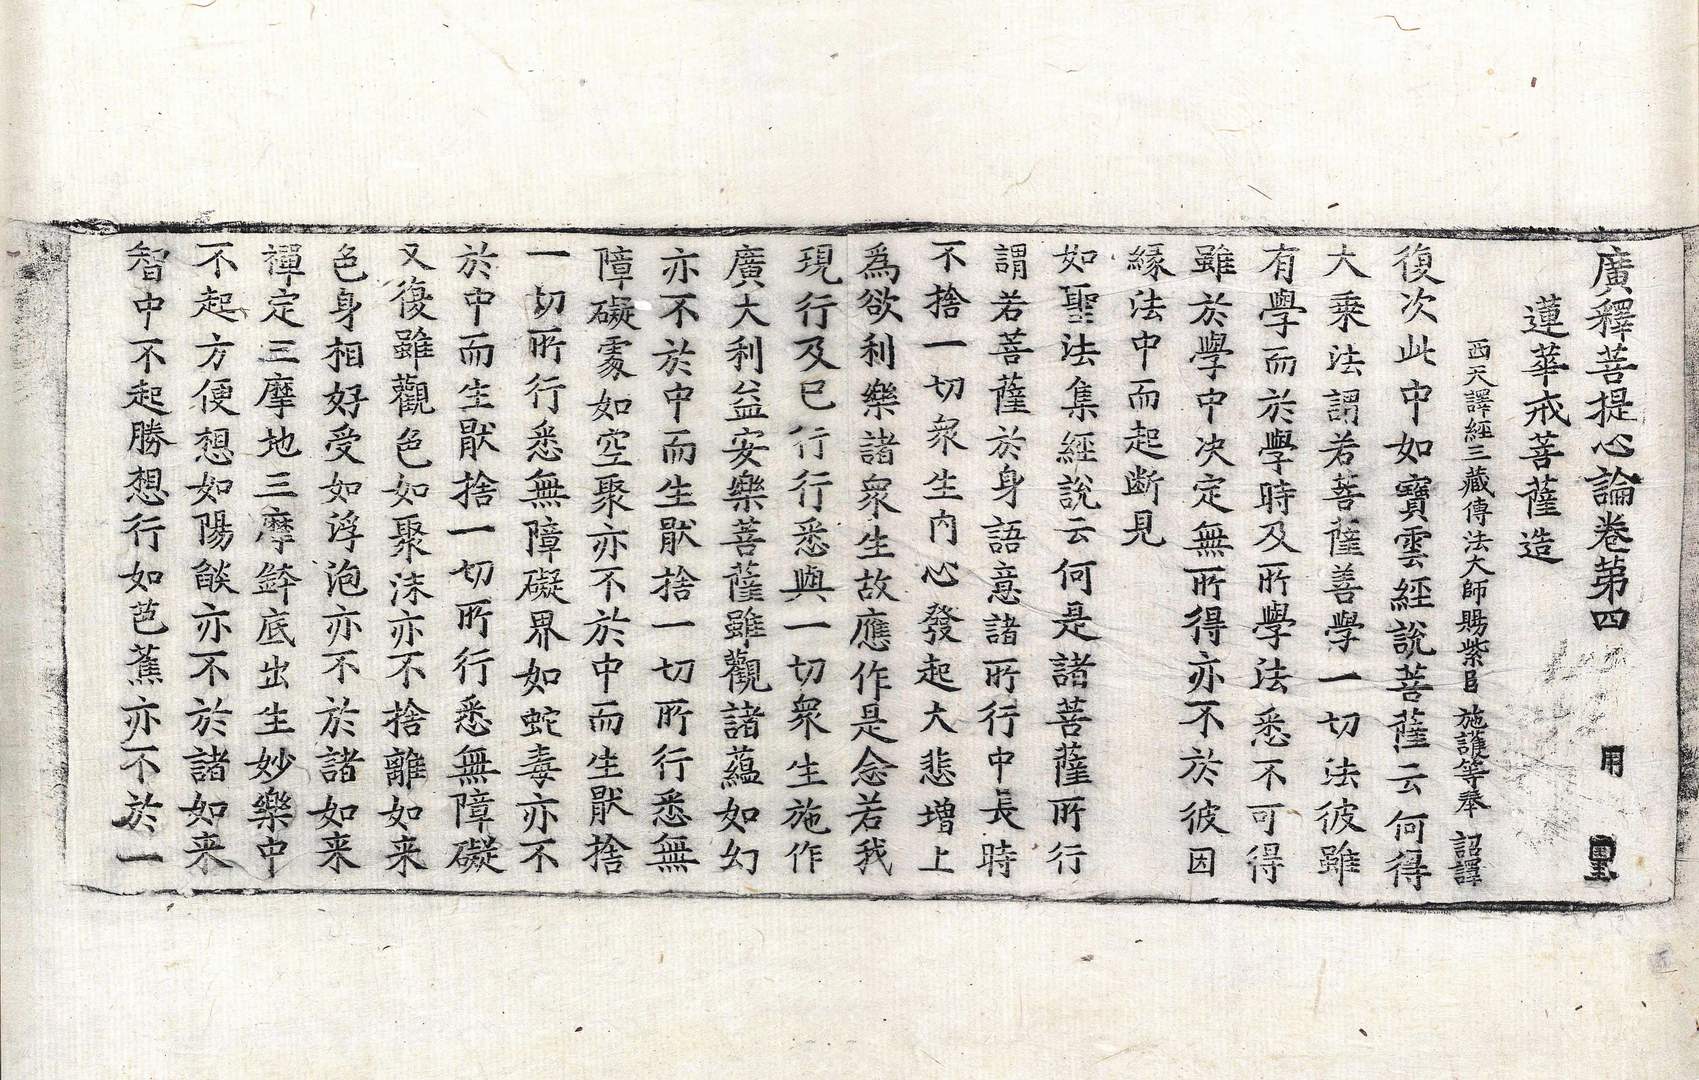 廣釋菩提心論卷第四 用
蓮華戒菩薩造
西天譯經三藏傳法大師賜紫臣 施護等奉 詔譯
復次此中如寶雲經說菩薩云何得
大乘法謂若菩薩善學一切法彼雖
有學而於學時及所學法悉不可得
雖於學中决定無所得亦不於彼因
緣法中而起斷見
如聖法集經說云何是諸菩薩所行
謂若菩薩於身語意諸所行中長時
不捨一切衆生內心發起大悲增上
爲欲利樂諸衆生故應作是念若我
現行及已行行悉與一切衆生施作
廣大利益安樂菩薩雖觀諸蘊如幻
亦不於中而生猒捨一切所行悉無
障礙雖觀如空聚亦不於中而生猒捨
一切所行悉無障礙界如蛇毒亦不
於中而生猒捨一切所行悉無障礙
又復雖觀色如聚沫亦不捨離如来
色身相好受如浮泡亦不於諸如来
禪定三摩地三摩鉢底出生妙樂中
不起方便想如陽燄亦不於諸如来
智中不起勝想行如芭蕉亦不於一